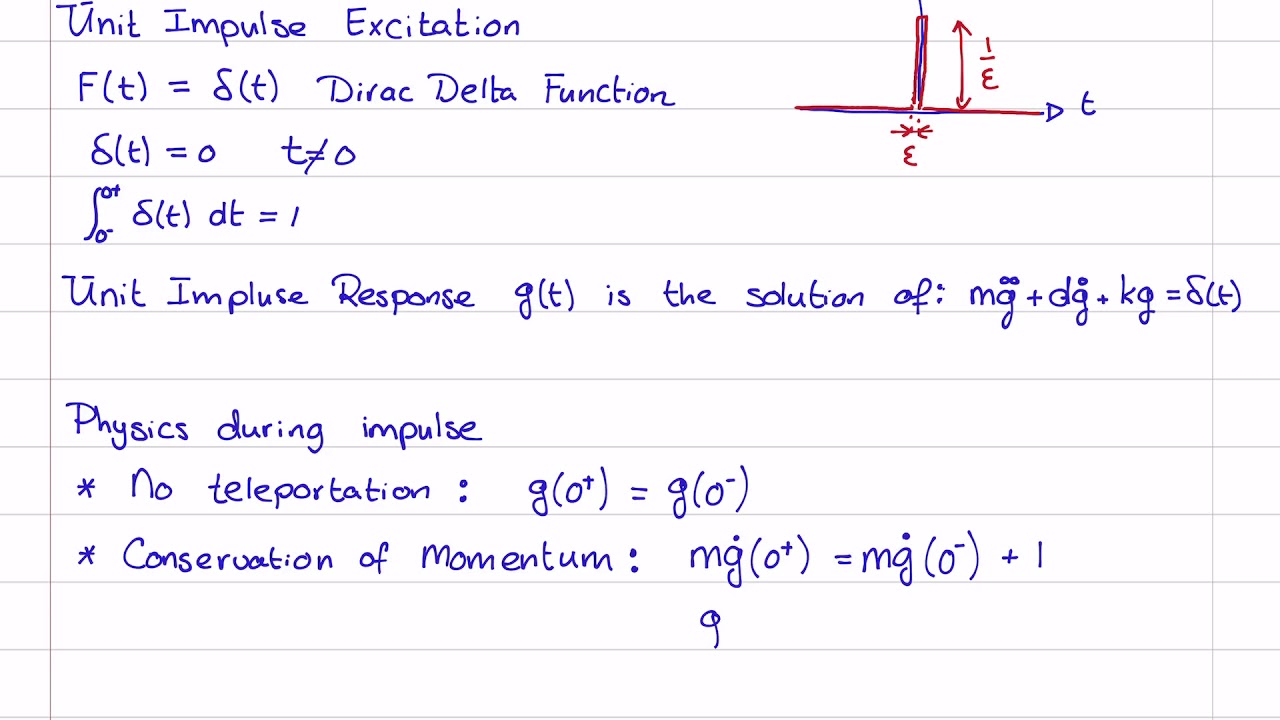 Unit Impulse Excitation
F(t) = δ(t) Dirac Delta Function
δ(t) = 0 t≠0
∫₀₋⁰⁺ δ(t) dt = 1
1/ε
t
ε
Unit Impluse Response g(t) is the solution of: mg̈ + dġ + kg = δ(t)
Physics during impulse
* No teleportation : g(0⁺) = g(0⁻)
* Conservation of Momentum : mġ(0⁺) = mġ(0⁻) + 1
g